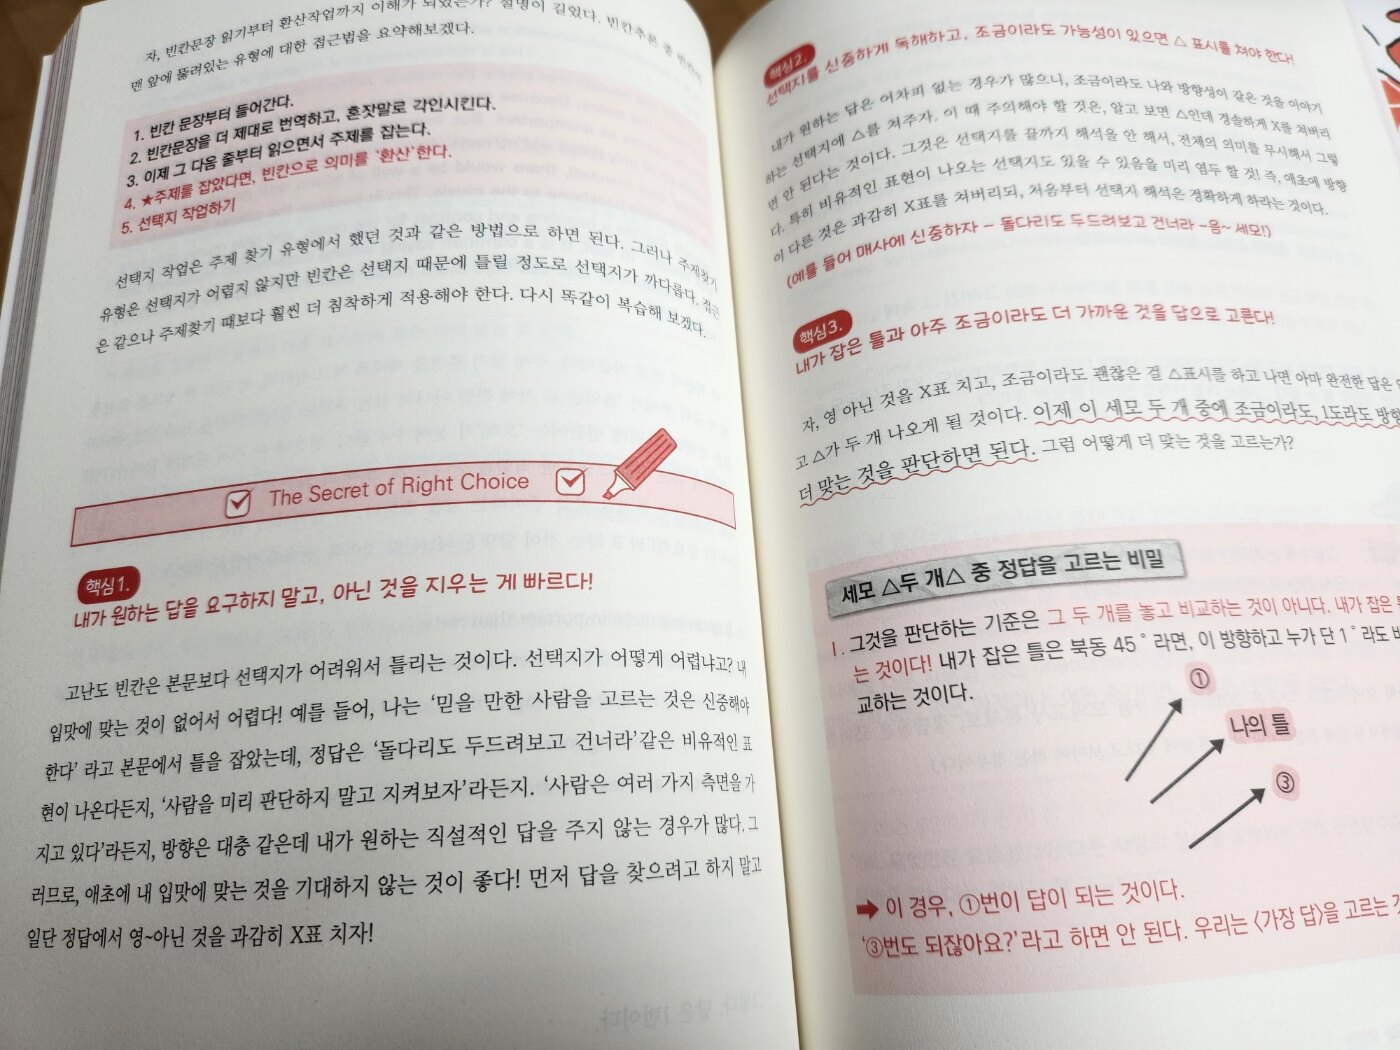 자, 빈칸문장 읽기부터 환산작업까지 이해가 되었는가? 설명이 길었다. 빈칸추론 중 빈칸이
맨 앞에 뚫려있는 유형에 대한 접근법을 요약해보겠다.
1. 빈칸 문장부터 들어간다.
2. 빈칸문장을 더 제대로 번역하고, 혼잣말로 각인시킨다.
3. 이제 그 다음 줄부터 읽으면서 주제를 잡는다.
4. ★주제를 잡았다면, 빈칸으로 의미를 '환산'한다.
5. 선택지 작업하기
선택지 작업은 주제 찾기 유형에서 했던 것과 같은 방법으로 하면 된다. 그러나 주제찾기
유형은 선택지가 어렵지 않지만 빈칸은 선택지 때문에 틀릴 정도로 선택지가 까다롭다. 접근
은 같으나 주제찾기 때보다 훨씬 더 침착하게 적용해야 한다. 다시 똑같이 복습해 보겠다.
The Secret of Right Choice
핵심1.
내가 원하는 답을 요구하지 말고, 아닌 것을 지우는 게 빠르다!
고난도 빈칸은 본문보다 선택지가 어려워서 틀리는 것이다. 선택지가 어떻게 어렵냐고? 내
입맛에 맞는 것이 없어서 어렵다! 예를 들어, 나는 '믿을 만한 사람을 고르는 것은 신중해야
한다' 라고 본문에서 틀을 잡았는데, 정답은 '돌다리도 두드려보고 건너라'같은 비유적인 표
현이 나온다든지, '사람을 미리 판단하지 말고 지켜보자'라든지. '사람은 여러 가지 측면을 가
지고 있다'라든지, 방향은 대충 같은데 내가 원하는 직설적인 답을 주지 않는 경우가 많다. 그
러므로, 애초에 내 입맛에 맞는 것을 기대하지 않는 것이 좋다! 먼저 답을 찾으려고 하지 말고
일단 정답에서 영~아닌 것을 과감히 X표 치자!
핵심2.
선택지를 신중하게 독해하고, 조금이라도 가능성이 있으면 △ 표시를 쳐야 한다!
내가 원하는 답은 어차피 없는 경우가 많으니, 조금이라도 나와 방향성이 같은 것을 이야기
하는 선택지에 △를 쳐주자. 이 때 주의해야 할 것은, 알고 보면 △인데 경솔하게 X를 쳐버리
면 안 된다는 것이다. 그것은 선택지를 끝까지 해석을 안 해서, 전체의 의미를 무시해서 그렇
다. 특히 비유적인 표현이 나오는 선택지도 있을 수 있음을 미리 염두 할 것! 즉, 애초에 방향
이 다른 것은 과감히 X표를 쳐버리되, 처음부터 선택지 해석은 정확하게 하라는 것이다.
(예를 들어 매사에 신중하자 – 돌다리도 두드려보고 건너라 –음~ 세모!)
핵심3.
내가 잡은 틀과 아주 조금이라도 더 가까운 것을 답으로 고른다!
자, 영 아닌 것을 X표 치고, 조금이라도 괜찮은 걸 △표시를 하고 나면 아마 완전한 답은
고 △가 두 개 나오게 될 것이다. 이제 이 세모 두 개 중에 조금이라도, 1도라도 방향
더 맞는 것을 판단하면 된다. 그럼 어떻게 더 맞는 것을 고르는가?
세모 △두 개△ 중 정답을 고르는 비밀
1. 그것을 판단하는 기준은 그 두 개를 놓고 비교하는 것이 아니다. 내가 잡은
는 것이다! 내가 잡은 틀은 북동 45˚ 라면, 이 방향하고 누가 단 1˚ 라도
교하는 것이다.
①
나의 틀
③
➡ 이 경우, ①번이 답이 되는 것이다.
'③번도 되잖아요?'라고 하면 안 된다. 우리는 <가장 답>을 고르는